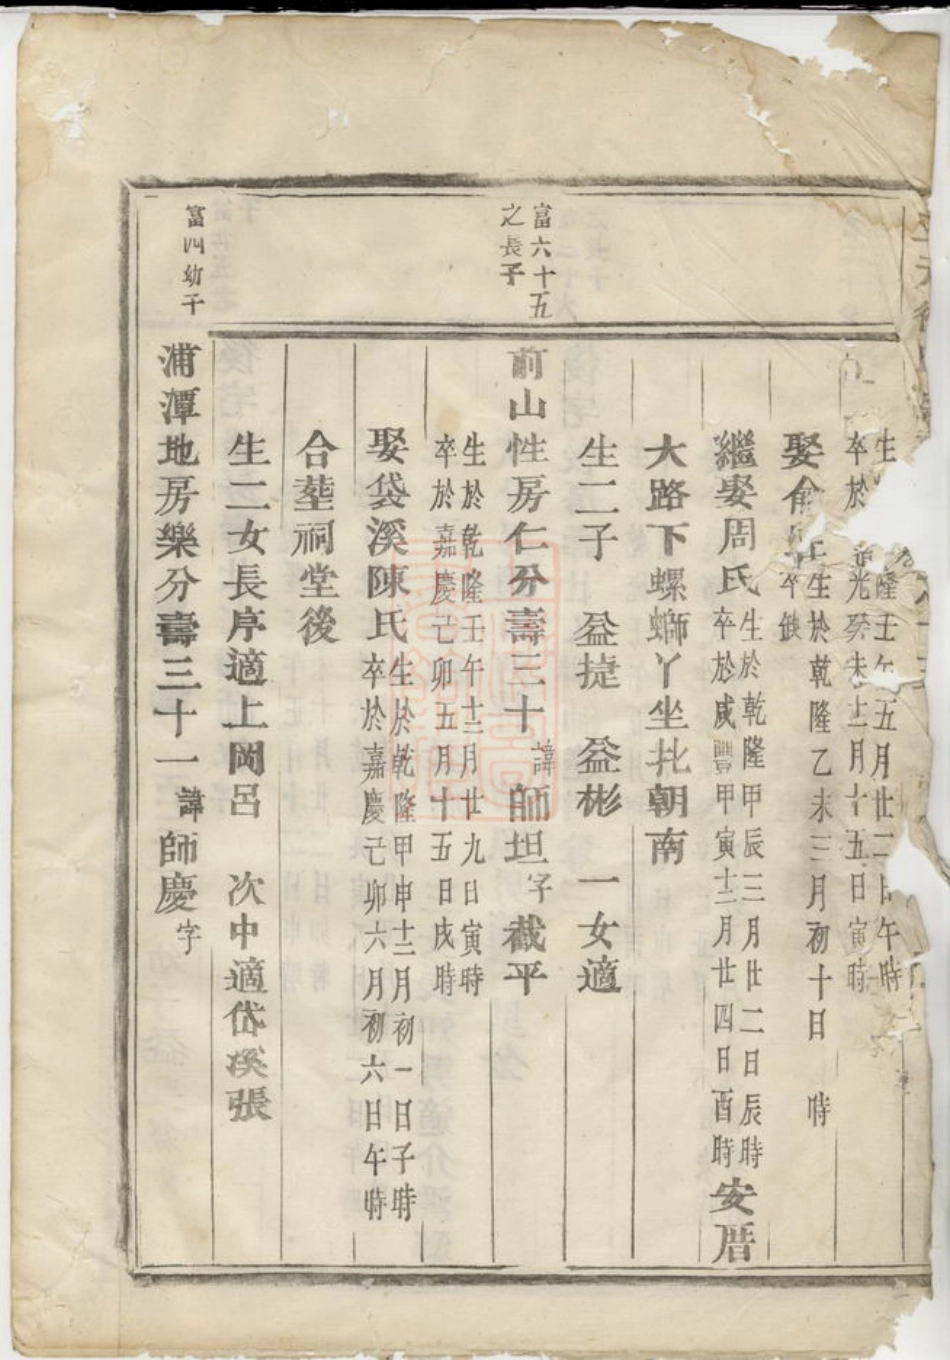 生隆壬午五月廿二日午時
卒於光癸未十二月十五日寅時
娶俞氏生於乾隆乙未三月初十日時
卒缺
繼娶周氏生於乾隆甲辰三月廿二日辰時
卒於咸豐甲寅十二月廿四日酉時安厝
大路下螺螄丫坐北朝南
生二子 益捷 益彬 一女適
富六十五
之長子
前山性房仁分壽三十諱師坦字截平
生於乾隆壬午十二月廿九日寅時
卒於嘉慶己卯五月十五日戌時
娶袋溪陳氏生於乾隆甲申十二月初一日子時
卒於嘉慶己卯六月初六日午時
合塟祠堂後
生二女長序適上岡呂 次中適岱溪張
富四幼子
浦潭地房樂分壽三十一諱師慶字